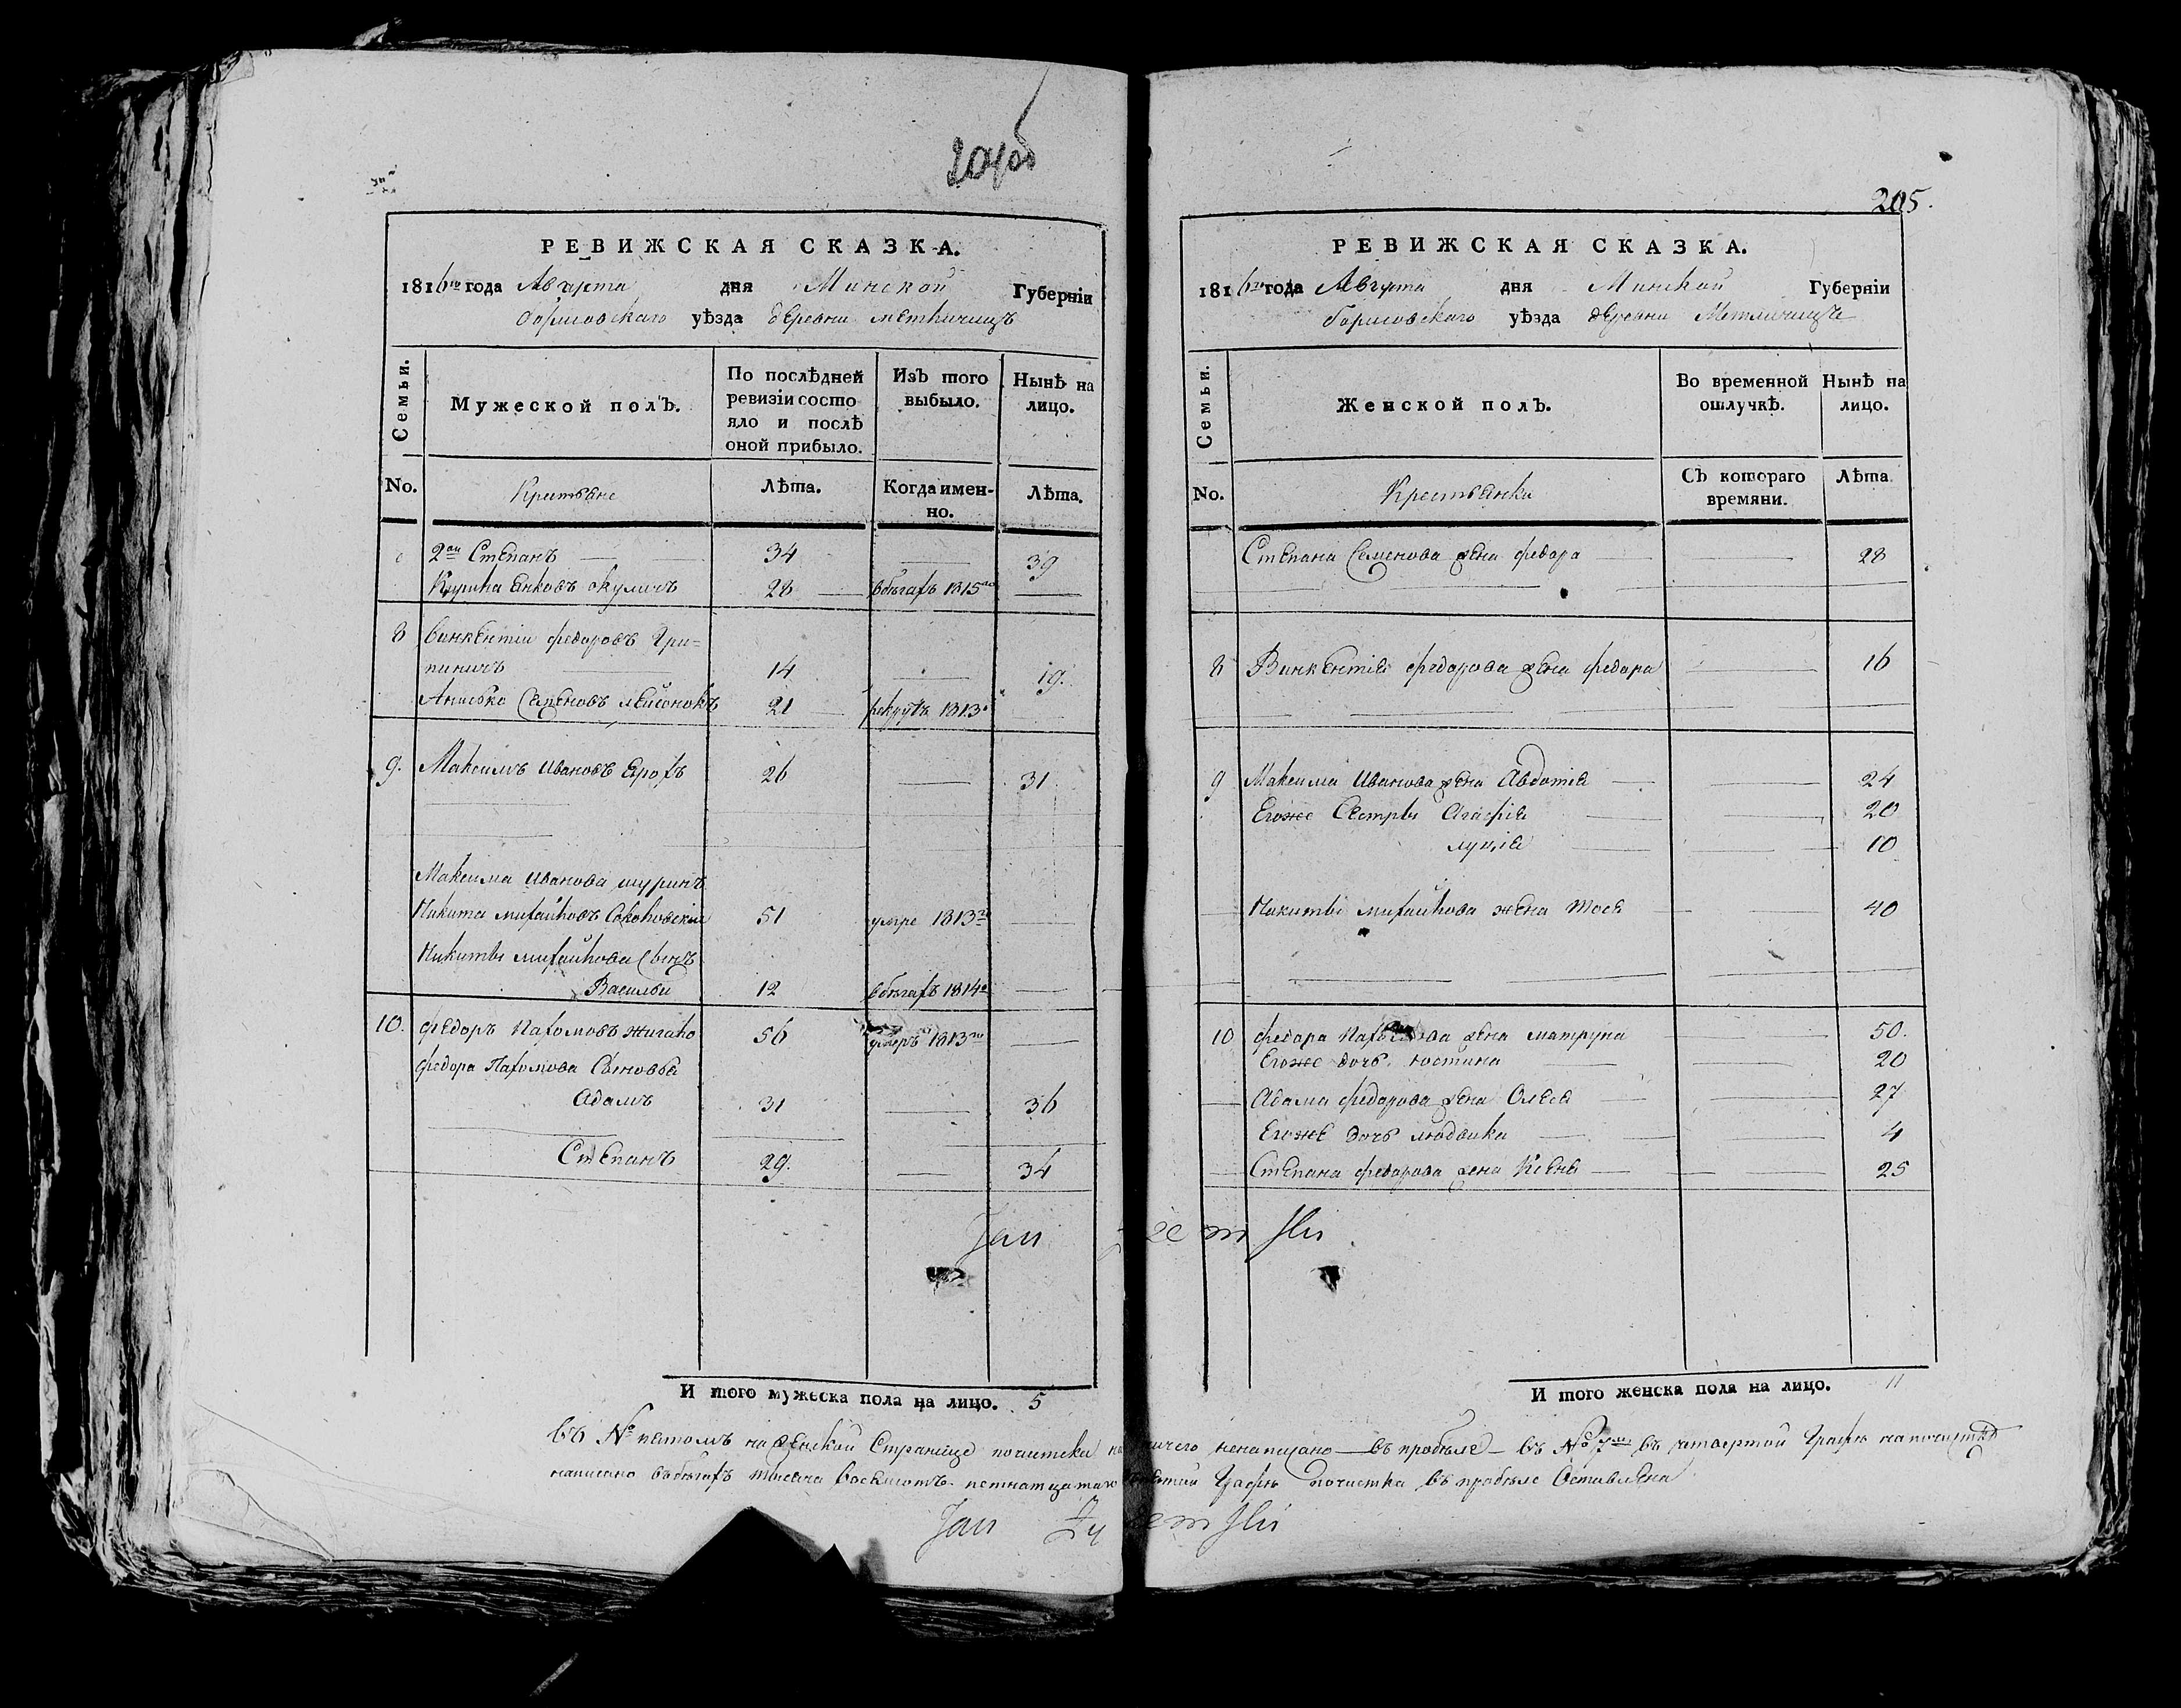 204об
РЕВИЖСКАЯ СКАЗКА.
1816го года Августа дня Минской Губерніи
борисовскаго уѣзда деревни
Семьи.
Мужеской полъ.
По послѣдней ревизіи состо
яло и послѣ
оной прибыло.
Изъ того выбыло.
Нынѣ на лицо.
No.
Крестьяне
Лѣта.
Когда имен-
но.
Лѣта.
2ой Степанъ 34 39
28 вбѣгахъ 1815го
8 винкентіи федоровъ Гри=
пиничъ 14 19.
Семеновъ 21 рекрутъ 1813
9. Максимъ Ивановъ 26 31
Максима Иванова шуринъ
Никита михайловъ Соколовскій 51 умре 1813го
Никиты михайлова Сынъ
Василій 12 вбѣгахъ 1814
10. Федоръ Пахомовъ жигало 56 умеръ 1813го
федора Пахомова Сыновья
Адамъ 31 36
Степанъ 29. 34
Jan
И того мужеска пола на лицо. 5
205.
РЕВИЖСКАЯ СКАЗКА.
1816го года Августа дня Минской Губерніи
борисовскаго уѣзда деревни
Семьи.
Женской полъ.
Во временной отлучкѣ.
Нынѣ на лицо.
No.
Крестьянки
Съ котораго времяни.
Лѣта.
Степана Семенова жена федора 28
8 Винкентія федорова жена федора 16
9 Максима Иванова жена Авдотія 24
Егоже Сестры Агафія 20
луція 10
Никиты михайлова жена 40
10 федора Пахомова жена матруна 50.
Егоже дочь юстина 20
Адама федорова жена Олеся 27
Егоже дочь людвика 4
Степана федорова жена Ксеня 25
И того женска пола на лицо. 11
въ № пятомъ на женской Страницѣ почистка ничего ненаписано въ пробѣлѣ въ № 7мъ въ четвертой Графѣ
написано вбѣгахъ тысяча восемсотъ петнатцатаго Графѣ почистка въ пробѣлѣ Оставлена
Jan